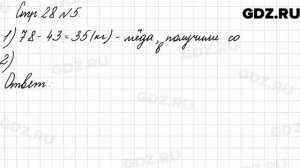 Стр 28 №5.
GDZ.RU
1) 78 - 43 = 35 (кг) - мёда, в получили со
2)
Ответ:
GDZ.RU